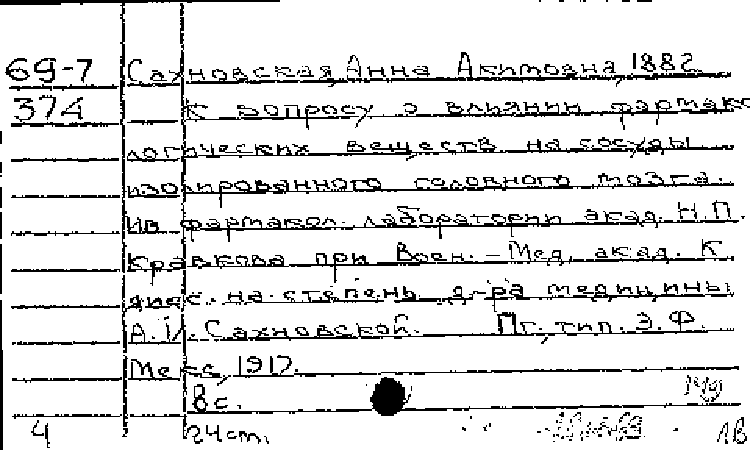 69-7 Сахновская, Анна Акимовна, 1882
374 К вопросу о влиянии фармако
логических веществ на сосуды
изолированного головного мозга.
Из фармакол. лаборатории акад. Н.П.
Кравкова при Воен.-Мед. акад. К
дисс. на степень д-ра медицины
А.И. Сахновской. Пг., тип. Э.Ф.
Мекс, 1917.
8 с.
4 24 cm. 1В